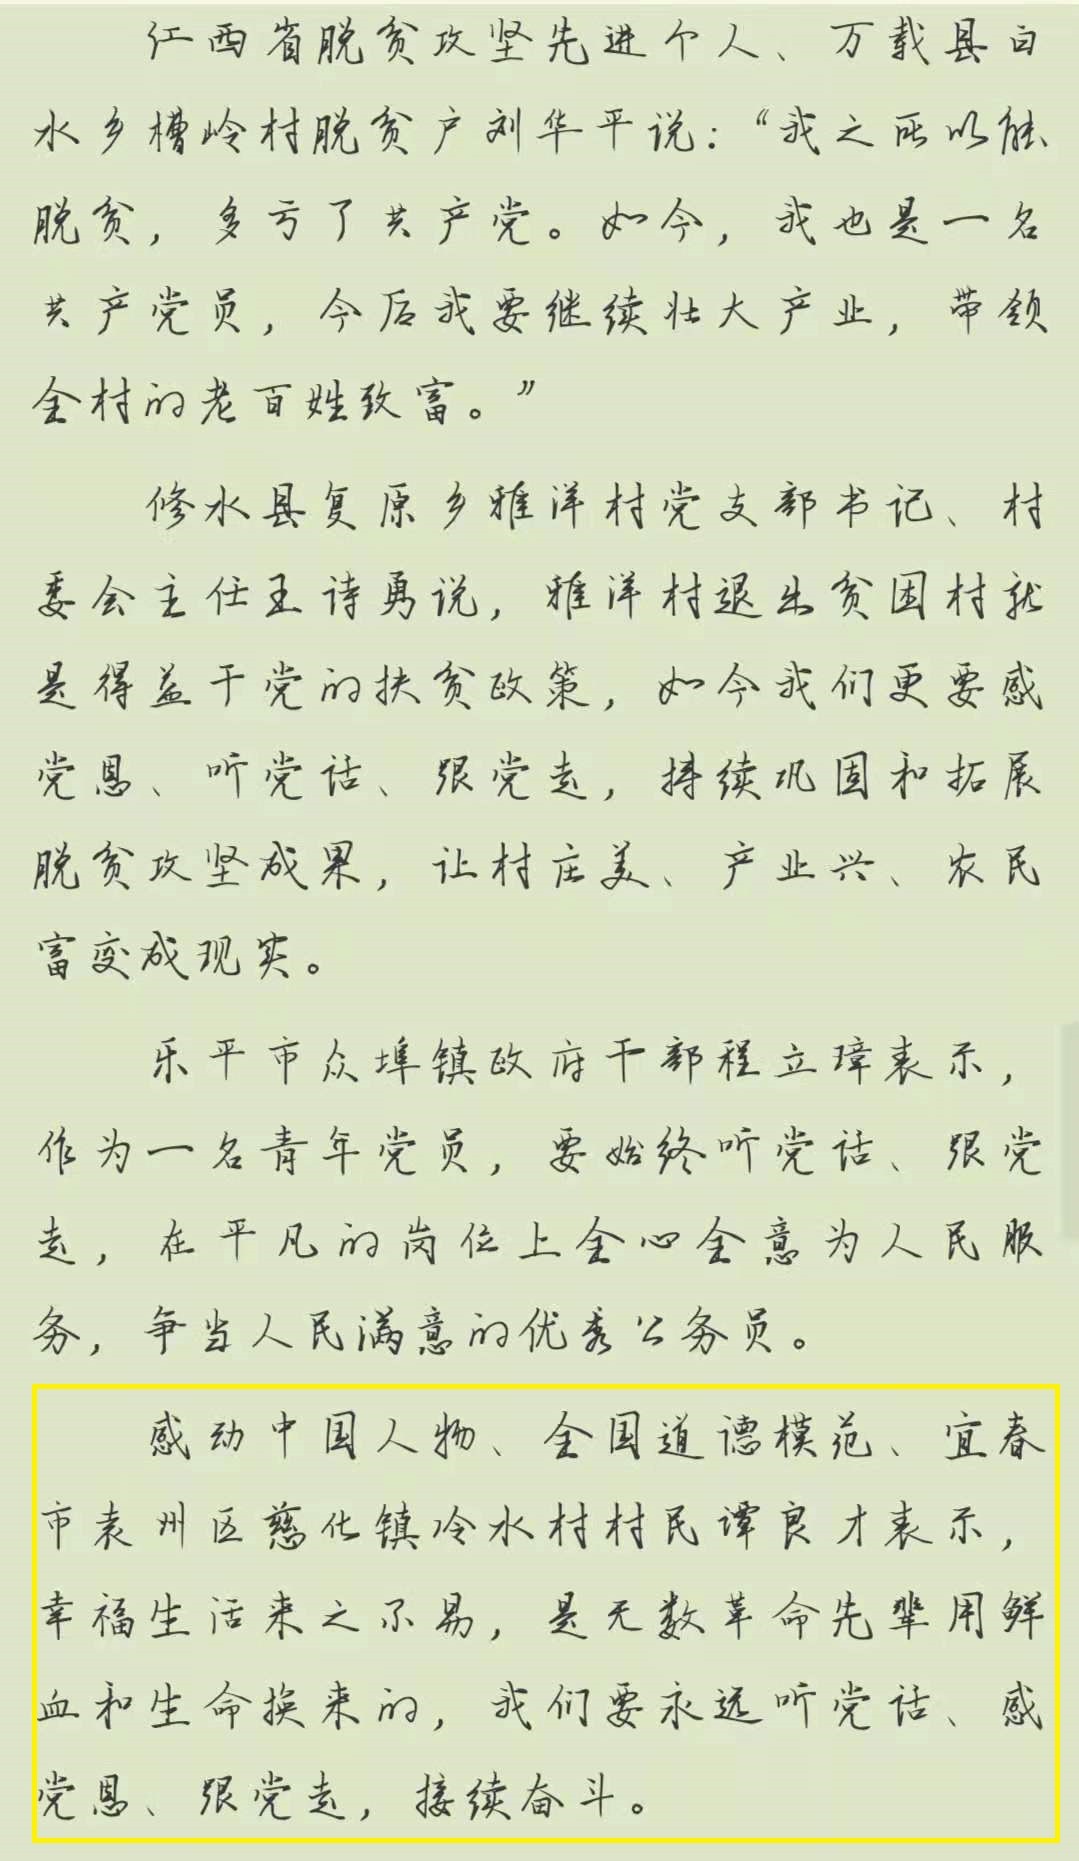 江西省脱贫攻坚先进个人、万载县白
水乡槽岭村脱贫户刘华平说：“我之所以能
脱贫，多亏了共产党。如今，我也是一名
共产党员，今后我要继续壮大产业，带领
全村的老百姓致富。”
修水县复原乡雅洋村党支部书记、村
委会主任王诗勇说，雅洋村退出贫困村就
是得益于党的扶贫政策，如今我们更要感
党恩、听党话、跟党走，持续巩固和拓展
脱贫攻坚成果，让村庄美、产业兴、农民
富变成现实。
乐平市众埠镇政府干部程立璋表示，
作为一名青年党员，要始终听党话、跟党
走，在平凡的岗位上全心全意为人民服
务，争当人民满意的优秀公务员。
感动中国人物、全国道德模范、宜春
市袁州区慈化镇冷水村村民谭良才表示，
幸福生活来之不易，是无数革命先辈用鲜
血和生命换来的，我们要永远听党话、感
党恩、跟党走，接续奋斗。